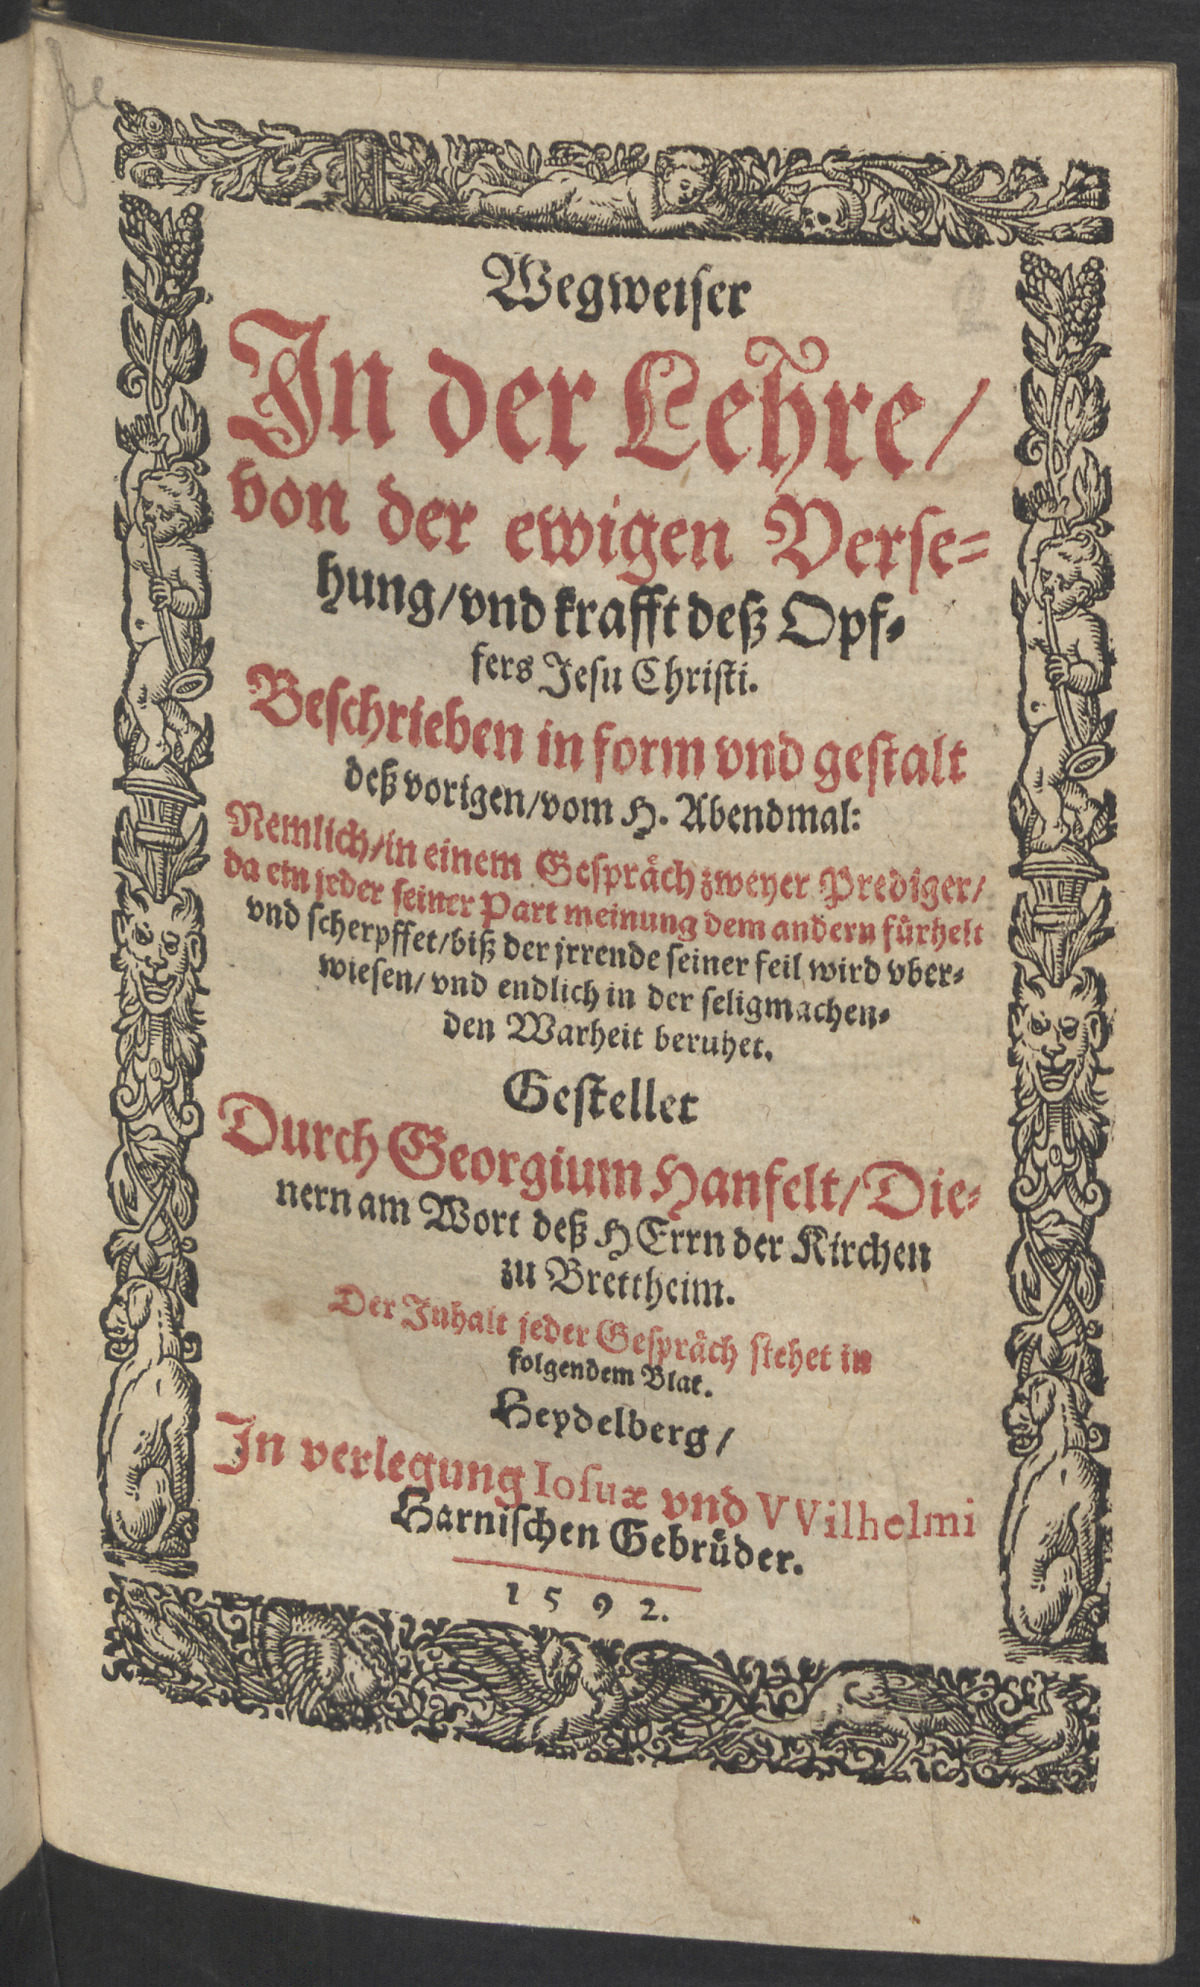 Wegweiser
In der Lehre/
von der ewigen Verse=
hung/vnd krafft deß Opf=
fers Jesu Christi.
Beschrieben in form vnd gestalt
deß vorigen/vom H. Abendmal:
Nemlich/in einem Gespräch zweyer Prediger/
da ein jeder seiner Part meinung dem andern fürhelt
vnd scherpffet/biß der jrrende seiner feil wird vber=
wiesen/vnd endlich in der seligmachen=
den Warheit beruhet.
Gestellet
Durch Georgium Hanfelt/Die=
nern am Wort deß HErrn der Kirchen
zu Brettheim.
Der Inhalt jeder Gespräch stehet in
folgendem Blat.
Heydelberg/
In verlegung Iosuæ vnd VVilhelmi
Harnischen Gebrüder.
1592.